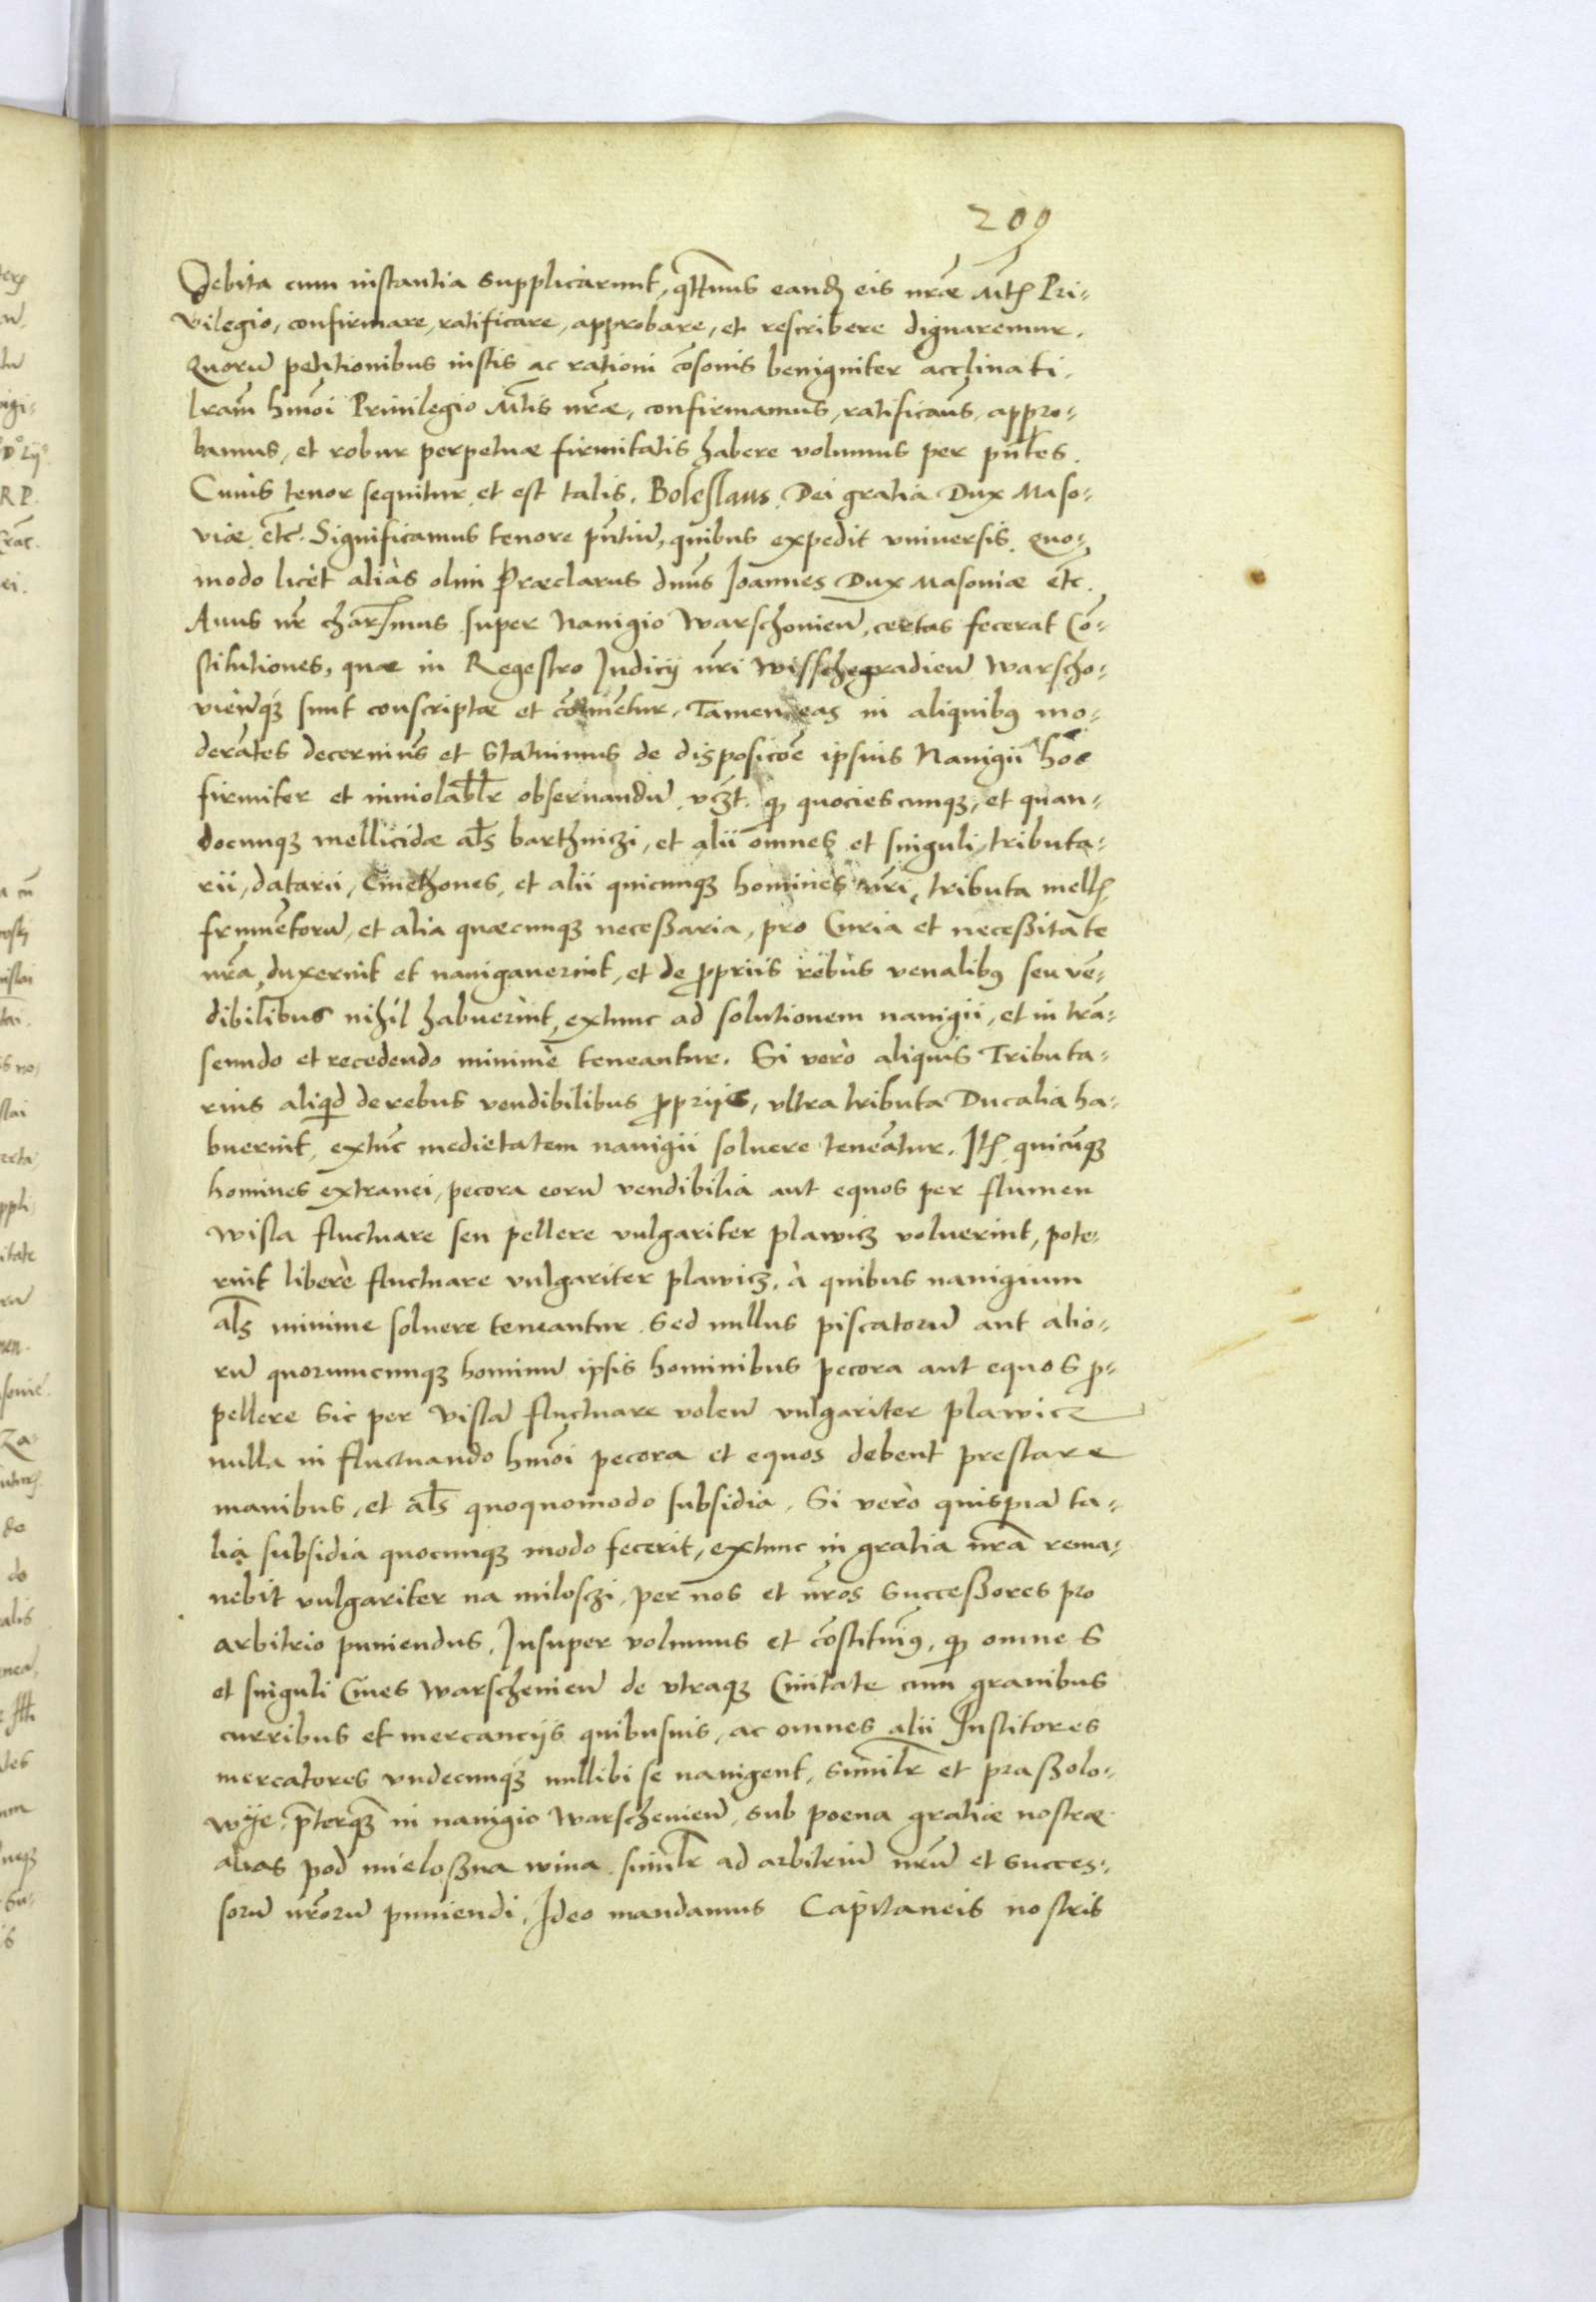 209
Debita cum instantia supplicarunt, qttenus eandē eis nr̄æ Mtis Pri-
vilegio, confirmare, ratificare, approbare, et rescribere dignaremur.
Quorū petitionibus iustis ac rationi cōsonis benigniter acclinati,
lram̄ hmōi Priuilegio Mtis nr̄æ, confirmamus, ratificam̄s, appro-
bamus, et robur perpetuæ firmitatis habere volumus per pn̄tes.
Cuius tenor sequitur et est talis. Boleslaus Dei gratia Dux Maso-
viæ etc̄. Significamus tenore pn̄tiū, quibus expedit vniuersis, quo-
modo licèt aliàs olim Præclarus dnūs Ioannes Dux Masouiæ etc̄.
Auus nr̄ charssimus super Nauigio Warschouien̄, certas fecerat Cō-
stitutiones, quæ in Regestro Judicij nr̄i Wisschegradien̄ Warscho-
vien̄q3 sunt conscriptæ et cōtinētur. Tamen eas in aliquib9 mo-
derātes decernim̄s et Statuimus de disposicōe ipsius Nauigii hoc
firmiter et inuiolabl̄r obseruandū, vczt. q̄ quociescunq3, et quan-
docunq3 mellicidæ al̄s barthniczi, et alii omnes et singuli, tributa-
rii, datarii, Cmethones, et alii quicunq3 homines nr̄i, tributa mell̄
frumētorū, et alia quæcunq3 necessaria, pro Curia et necessitate
nr̄a, duxerint et nauigauerint, et de propriis rebus venalib9 seu vē-
dibilibus nihil habuerint, extunc ad solutionem nauigii, et in trā-
seundo et recedendo minimè teneantur. Si verò aliquis Tributa-
rius aliqd de rebus vendibilibus propriis, vltra tributa Ducalia ha-
buerint, extūc medietatem nauigii soluere teneātur. Itē quicūq3
homines extranei, pecora eorū vendibilia aut equos per flumen
Wisla fluctuare seu pellere vulgariter plawicz voluerint, pote-
rint liberè fluctuare vulgariter plawicz, à quibus nauigium
al̄s minime soluere teneantur. Sed nullus piscatorū aut alio-
rū quorumcunq3 hominū ipsis hominibus pecora aut equos p-
pellere sic per Vislā fluctuare volen̄ vulgariter plawicz
nulla in fluctuando hmōi pecora et equos debent prestare
manibus, et al̄s quoquomodo subsidia. Si verò quispiā ta-
lia subsidia quocunq3 modo fecerit, extunc in gratia nr̄a rema-
nebit vulgariter na miloschi, per nos et nr̄os successores pro
arbitrio puniendus. Insuper volumus et cōstituim9, q̄ omnes
et singuli Ciues Warschenien̄ de vtraq3 Ciuitate cum grauibus
curribus et mercanciis quibusuis, ac omnes alii Institores
mercatores vndecunq3 nullibi se nauigent, similr̄ et prassolo-
wÿe, p̄terq̄3 in nauigio Warschenien̄, sub poena gratiæ nostræ
alias pod mielossna wina similr̄ ad arbitriū nr̄ū et succes-
sorū nr̄orū puniendi. Ideo mandamus Capitaneis nostris